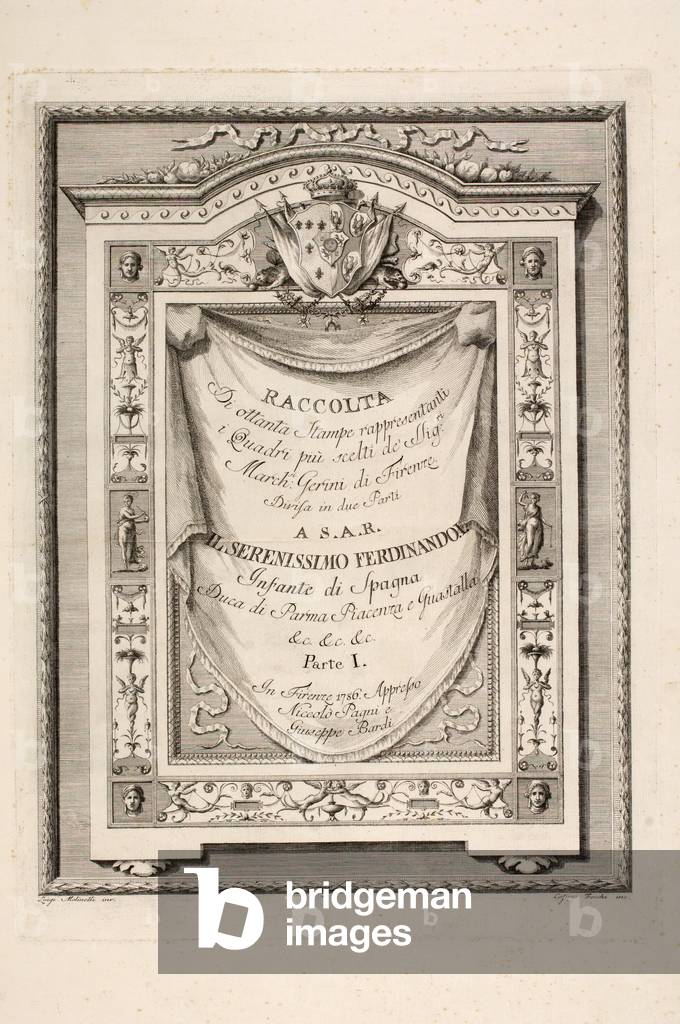 RACCOLTA
Di ottanta Stampe rappresentanti
i Quadri più scelti de' Sigri
Marchi Gerini di Firenze
Divisa in due Parti
A S.A.R.
IL SERENISSIMO FERDINANDO I.
Infante di Spagna
Duca di Parma Piacenza e Guastalla
&c. &c. &c.
Parte I.
In Firenze 1786. Appresso
Niccolò Pagni e
Giuseppe Bardi
Luigi Molinelli inv.
inc.
bridgeman
images